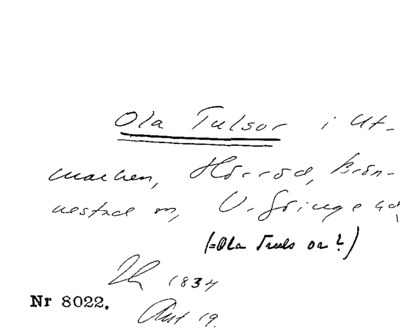 Ola Tulsor i Ut-
marken, Hörröd, Brön-
nestad sn, V. Göinge hd,
(=Ola Truls or?)
1834
Nr 8022.
19.